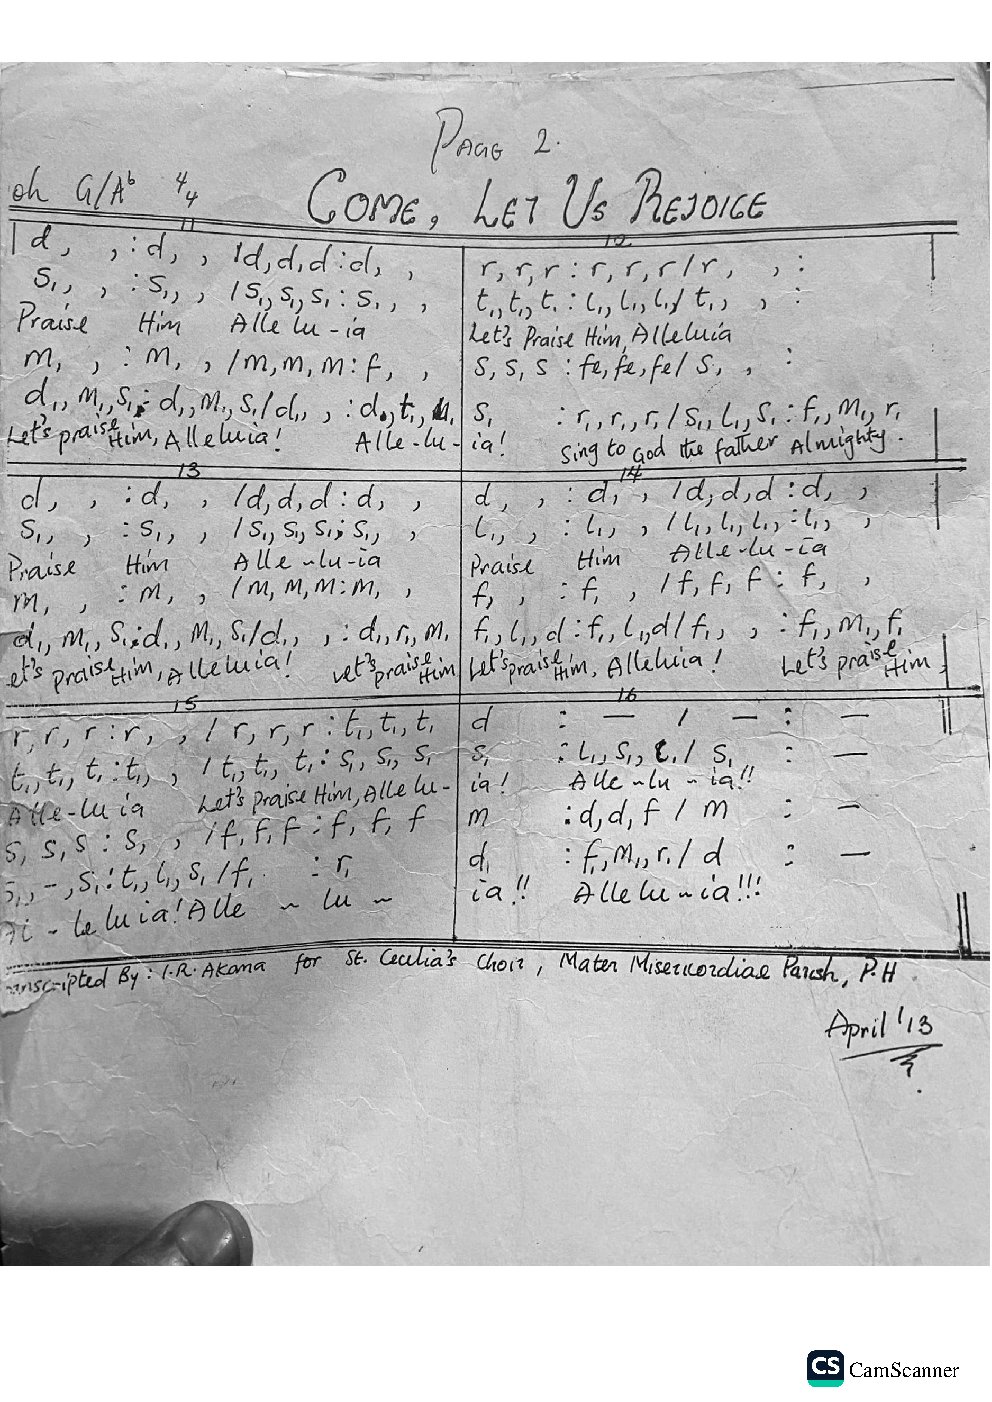 Page 2.
oh G/Ab 4/4
COME, LET US REJOICE
11
| d, , : d, , /d,d,d : d, ,
S₁, , : S₁, , /S₁,S₁,S₁ : S₁, ,
Praise Him Alle lu-ia
m, , : m, , /m,m,m : f, ,
d₁,m₁,S₁ : d₁,m₁,S₁/d₁, , : d,t₁,
Let's praise Him, Alleluia! Alle-lu-
r,r,r : r,r,r/r, , :
t₁,t₁,t₁ : l₁,l₁,l₁/t₁, , :
Let's Praise Him, Alleluia
S,S,S : fe,fe,fe/S, , :
S₁ : r₁,r₁,r₁/S₁,l₁,S₁ : f₁,m₁,r₁
ia! Sing to God the father Almighty.
13
d, , : d, , /d,d,d : d, ,
S₁, , : S₁, , /S₁,S₁,S₁ : S₁, ,
Praise Him Alle-lu-ia
m, , : m, , /m,m,m : m, ,
d₁,m₁,S₁ : d₁,m₁,S₁/d₁, , : d₁,r₁,m₁
et's praise Him, Alleluia! Let's praise Him
14
d, , : d, , /d,d,d : d, ,
l₁, , : l₁, , /l₁,l₁,l₁ : l₁, ,
Praise Him Alle-lu-ia
f, , : f, , /f,f,f : f, ,
f₁,l₁,d : f₁,l₁,d/f₁, , : f₁,m₁,f₁
Let's praise Him, Alleluia! Let's praise Him,
15
r,r,r : r, , /r,r,r : t₁,t₁,t₁
t₁,t₁,t₁ : t₁, , /t₁,t₁,t₁ : S₁,S₁,S₁
Alle-lu ia Let's Praise Him, Alle lu-
S,S,S : S, , /f,f,f : f,f,f
S₁,-,S₁ : t₁,l₁,S₁/f₁ : r₁
- le lu ia! Alle - lu -
16
d : — / — : —
S₁ : l₁,S₁,l₁/S₁ : —
ia! Alle-lu-ia!!
m : d,d,f/m : —
d₁ : f₁,m₁,r₁/d : —
ia!! Alle lu-ia!!!
anscripted By: I.R. Akana for St. Cecilia's Choir, Mater Misericordiae Parish, P.H
April '13
CS CamScanner